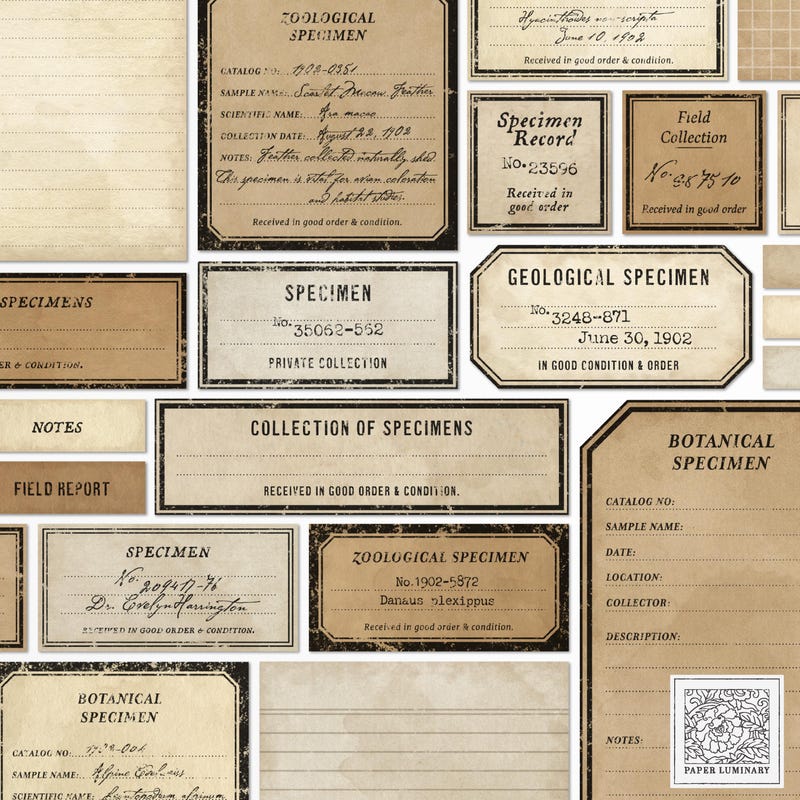 ZOOLOGICAL
SPECIMEN
CATALOG NO: 1902-0351
SAMPLE NAME: Scarlet Macaw Feather
SCIENTIFIC NAME: Ara macao
COLLECTION DATE: August 22, 1902
NOTES: Feather collected naturally shed.
This specimen is vital for avian coloration
and habitat studies.
Received in good order & condition.
Hyacinthoides non-scripta
June 10, 1902
Received in good order & condition.
Specimen
Record
No. 23596
Received in
good order
Field
Collection
No.
Received in good order
SPECIMENS
ER & CONDITION.
SPECIMEN
No. 35062-562
PRIVATE COLLECTION
GEOLOGICAL SPECIMEN
No. 3248-871
June 30, 1902
IN GOOD CONDITION & ORDER
NOTES
FIELD REPORT
COLLECTION OF SPECIMENS
RECEIVED IN GOOD ORDER & CONDITION.
SPECIMEN
No. 209417-76
Dr. Evelyn Harrington
RECEIVED IN GOOD ORDER & CONDITION.
ZOOLOGICAL SPECIMEN
No. 1902-5872
Danaus plexippus
Received in good order & condition.
BOTANICAL
SPECIMEN
CATALOG NO:
SAMPLE NAME:
DATE:
LOCATION:
COLLECTOR:
DESCRIPTION:
NOTES:
BOTANICAL
SPECIMEN
CATALOG NO:
SAMPLE NAME: Alpine Edelweiss
SCIENTIFIC NAME: Leontopodium alpinum
PAPER LUMINARY